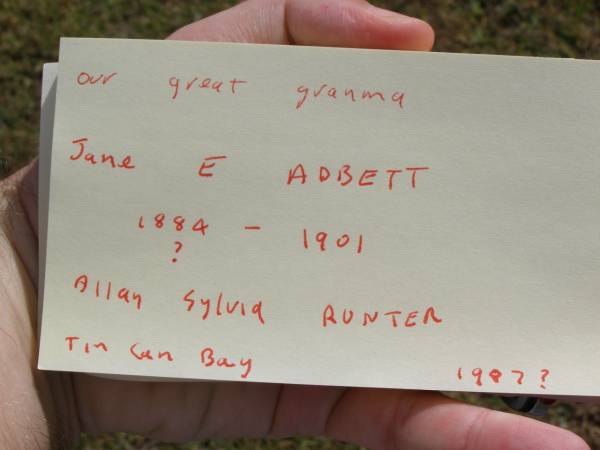 our great granma
Jane E ADBETT
1884 - 1901
?
Allan Sylvia RUNTER
Tin Can Bay
1987?